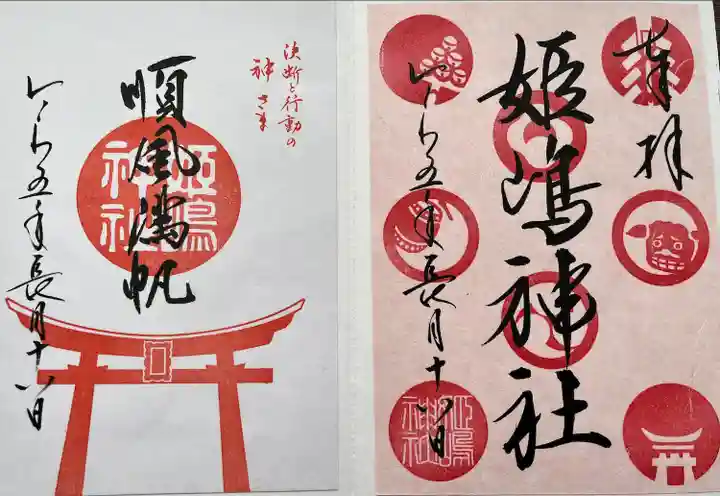 奉拝
姫嶋神社
れいわ五年長月十八日
姫嶋神社
決断と行動の
神さま
順風満帆
れいわ五年長月十八日
姫嶋神社